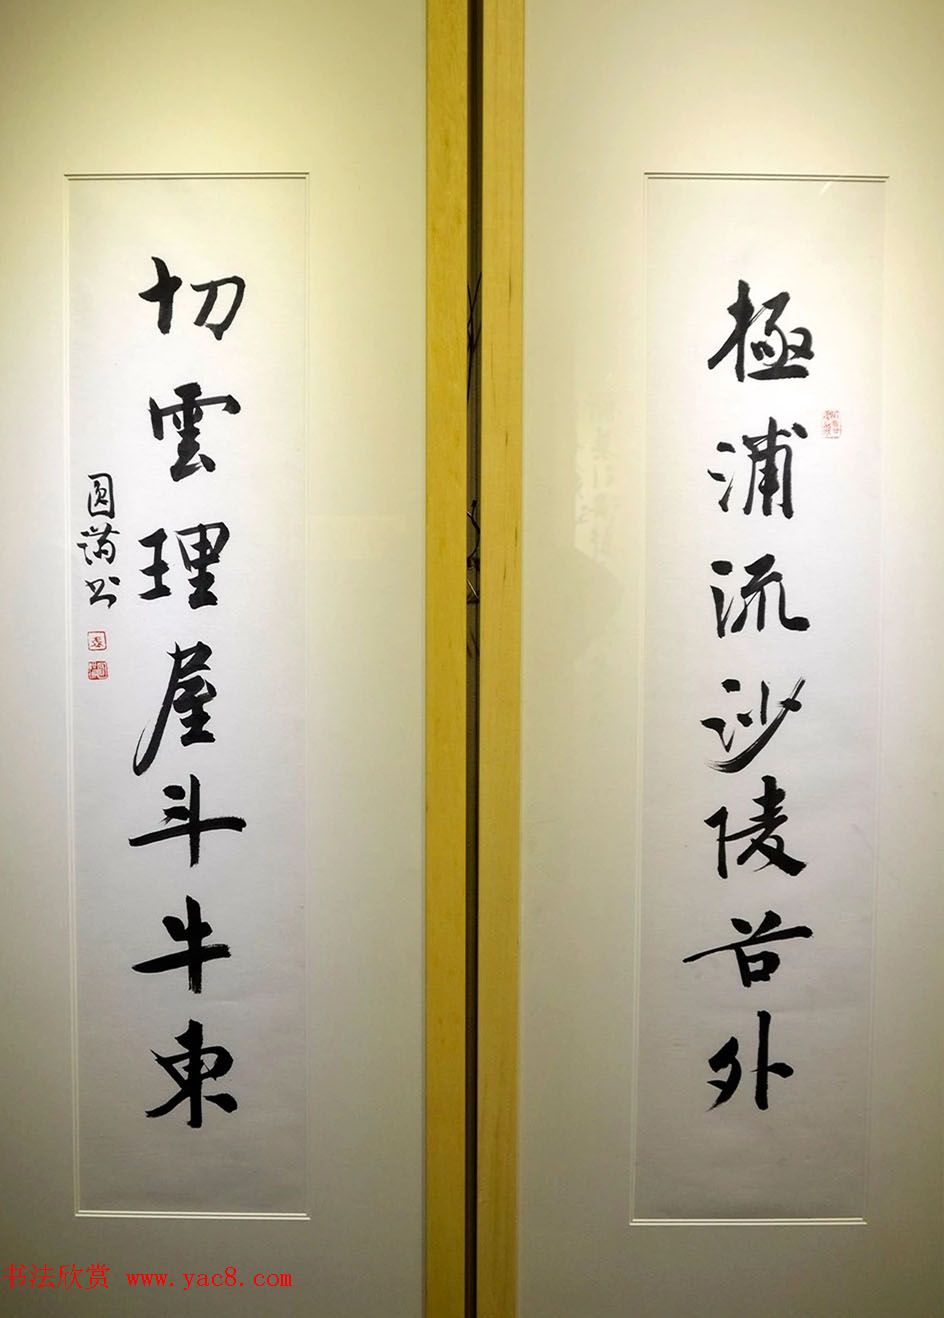 極浦流沙陵谷外
切雲理屋斗牛東
圆满书
书法欣赏 www.yac8.com